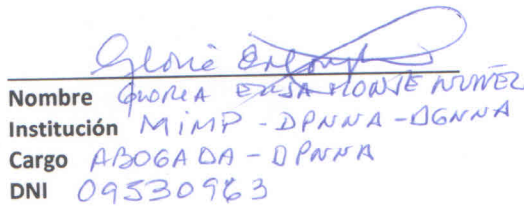 Nombre GLORIA ELSA MONJE NUÑEZ
Institución MiMP - DPNNA - DGNNA
Cargo ABOGADA - DPNNA
DNI 09530963